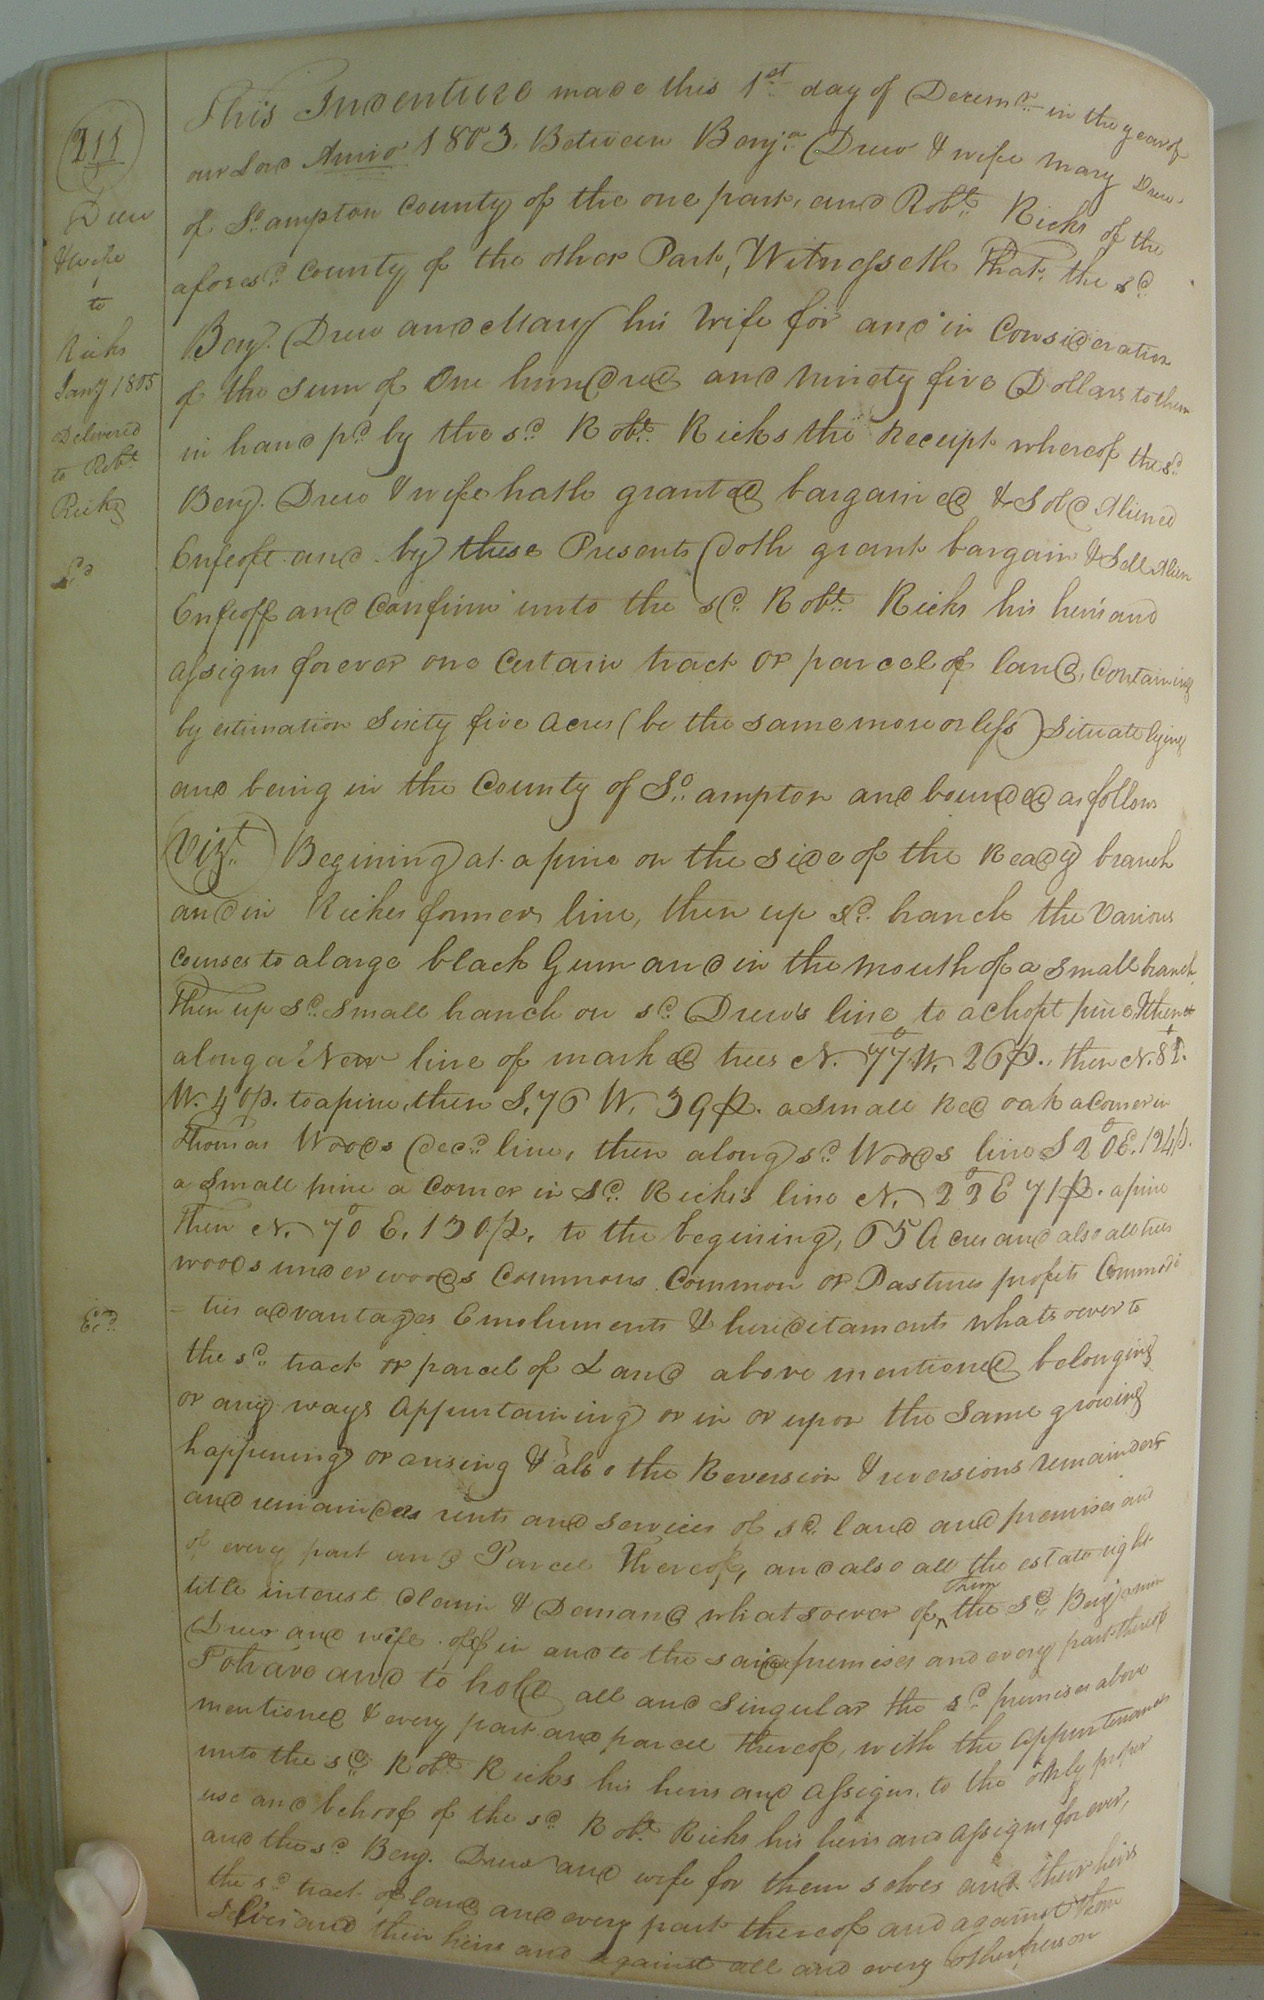 211
Drew
& wife
to
Ricks
Jany 1805
Delivered
to Robt
Ricks
Ed
Exd
This Indenture made this 1st day of Decemr in the year of
our Lord Anno 1803. Between Benja Drew & wife Mary Drew
of So.ampton County of the one part, and Robt. Ricks of the
aforesd. County of the other Part, Witnesseth That, the sd.
Benj. Drew and Mary his Wife for and in Consideration
of the sum of One hundred and ninety five Dollars to them
in hand pd by the sd. Robt. Ricks the Receipt whereof the sd.
Benj. Drew & wife hath granted bargained & Sold Aliened
Enfeoft and by these Presents doth grant bargain & Sell Alien
Enfeoff and Confirm unto the sd. Robt. Ricks his heirs and
assigns forever one Certain tract or parcel of land, Containing
by estimation Sixty five Acres (be the same more or less) Situate lying
and being in the County of So.ampton and bounded as follows
Vizt. Begining at a pine on the side of the Reedy branch
and in Rickes former line, then up sd. branch the Various
Courses to a large black Gum and in the mouth of a small branch
then up sd. small branch on sd. Drew's line to a chopt pine, then
along a New line of marked trees N. 77° W. 26 p., then N. 81.
W. 40 p. to a pine, then S. 76 W. 39 p. a small Red oak a Corner in
Thomas Woods decd. line, then along sd. Woods line S 20° E. 124 p.
a small pine a Corner in sd. Ricks's line N. 22° E 71 p. a pine
then N. 70° E. 130 p. to the begining, 65 Acres and also all trees
woods underwoods Commons Common or Pastures profits Commodi
=ties advantages Emoluments & hereditaments whatsoever to
the sd. tract or parcel of Land above mentioned belonging
or any ways Appurtaining or in or upon the same growing
happening or arising & also the Reversion & reversions remainder
and remainders rents and services of sd. land and premises and
of every part and Parcel thereof, and also all the estate right
title interest Claim & Demand whatsoever of ^them the sd. Benjamin
Drew and wife off in and to the said premises and every part thereof
To have and to hold all and singular the sd. premises above
mentioned & every part and parcel thereof, with the appurtenances
unto the sd. Robt. Ricks his heirs and assigns, to the only proper
use and behoof of the sd. Robt. Ricks his heirs and assigns forever,
and the sd. Benj. Drew and wife for them selves and their heirs
the sd. tract of land and every part thereof and against them
selves and their heirs and against all and every other person